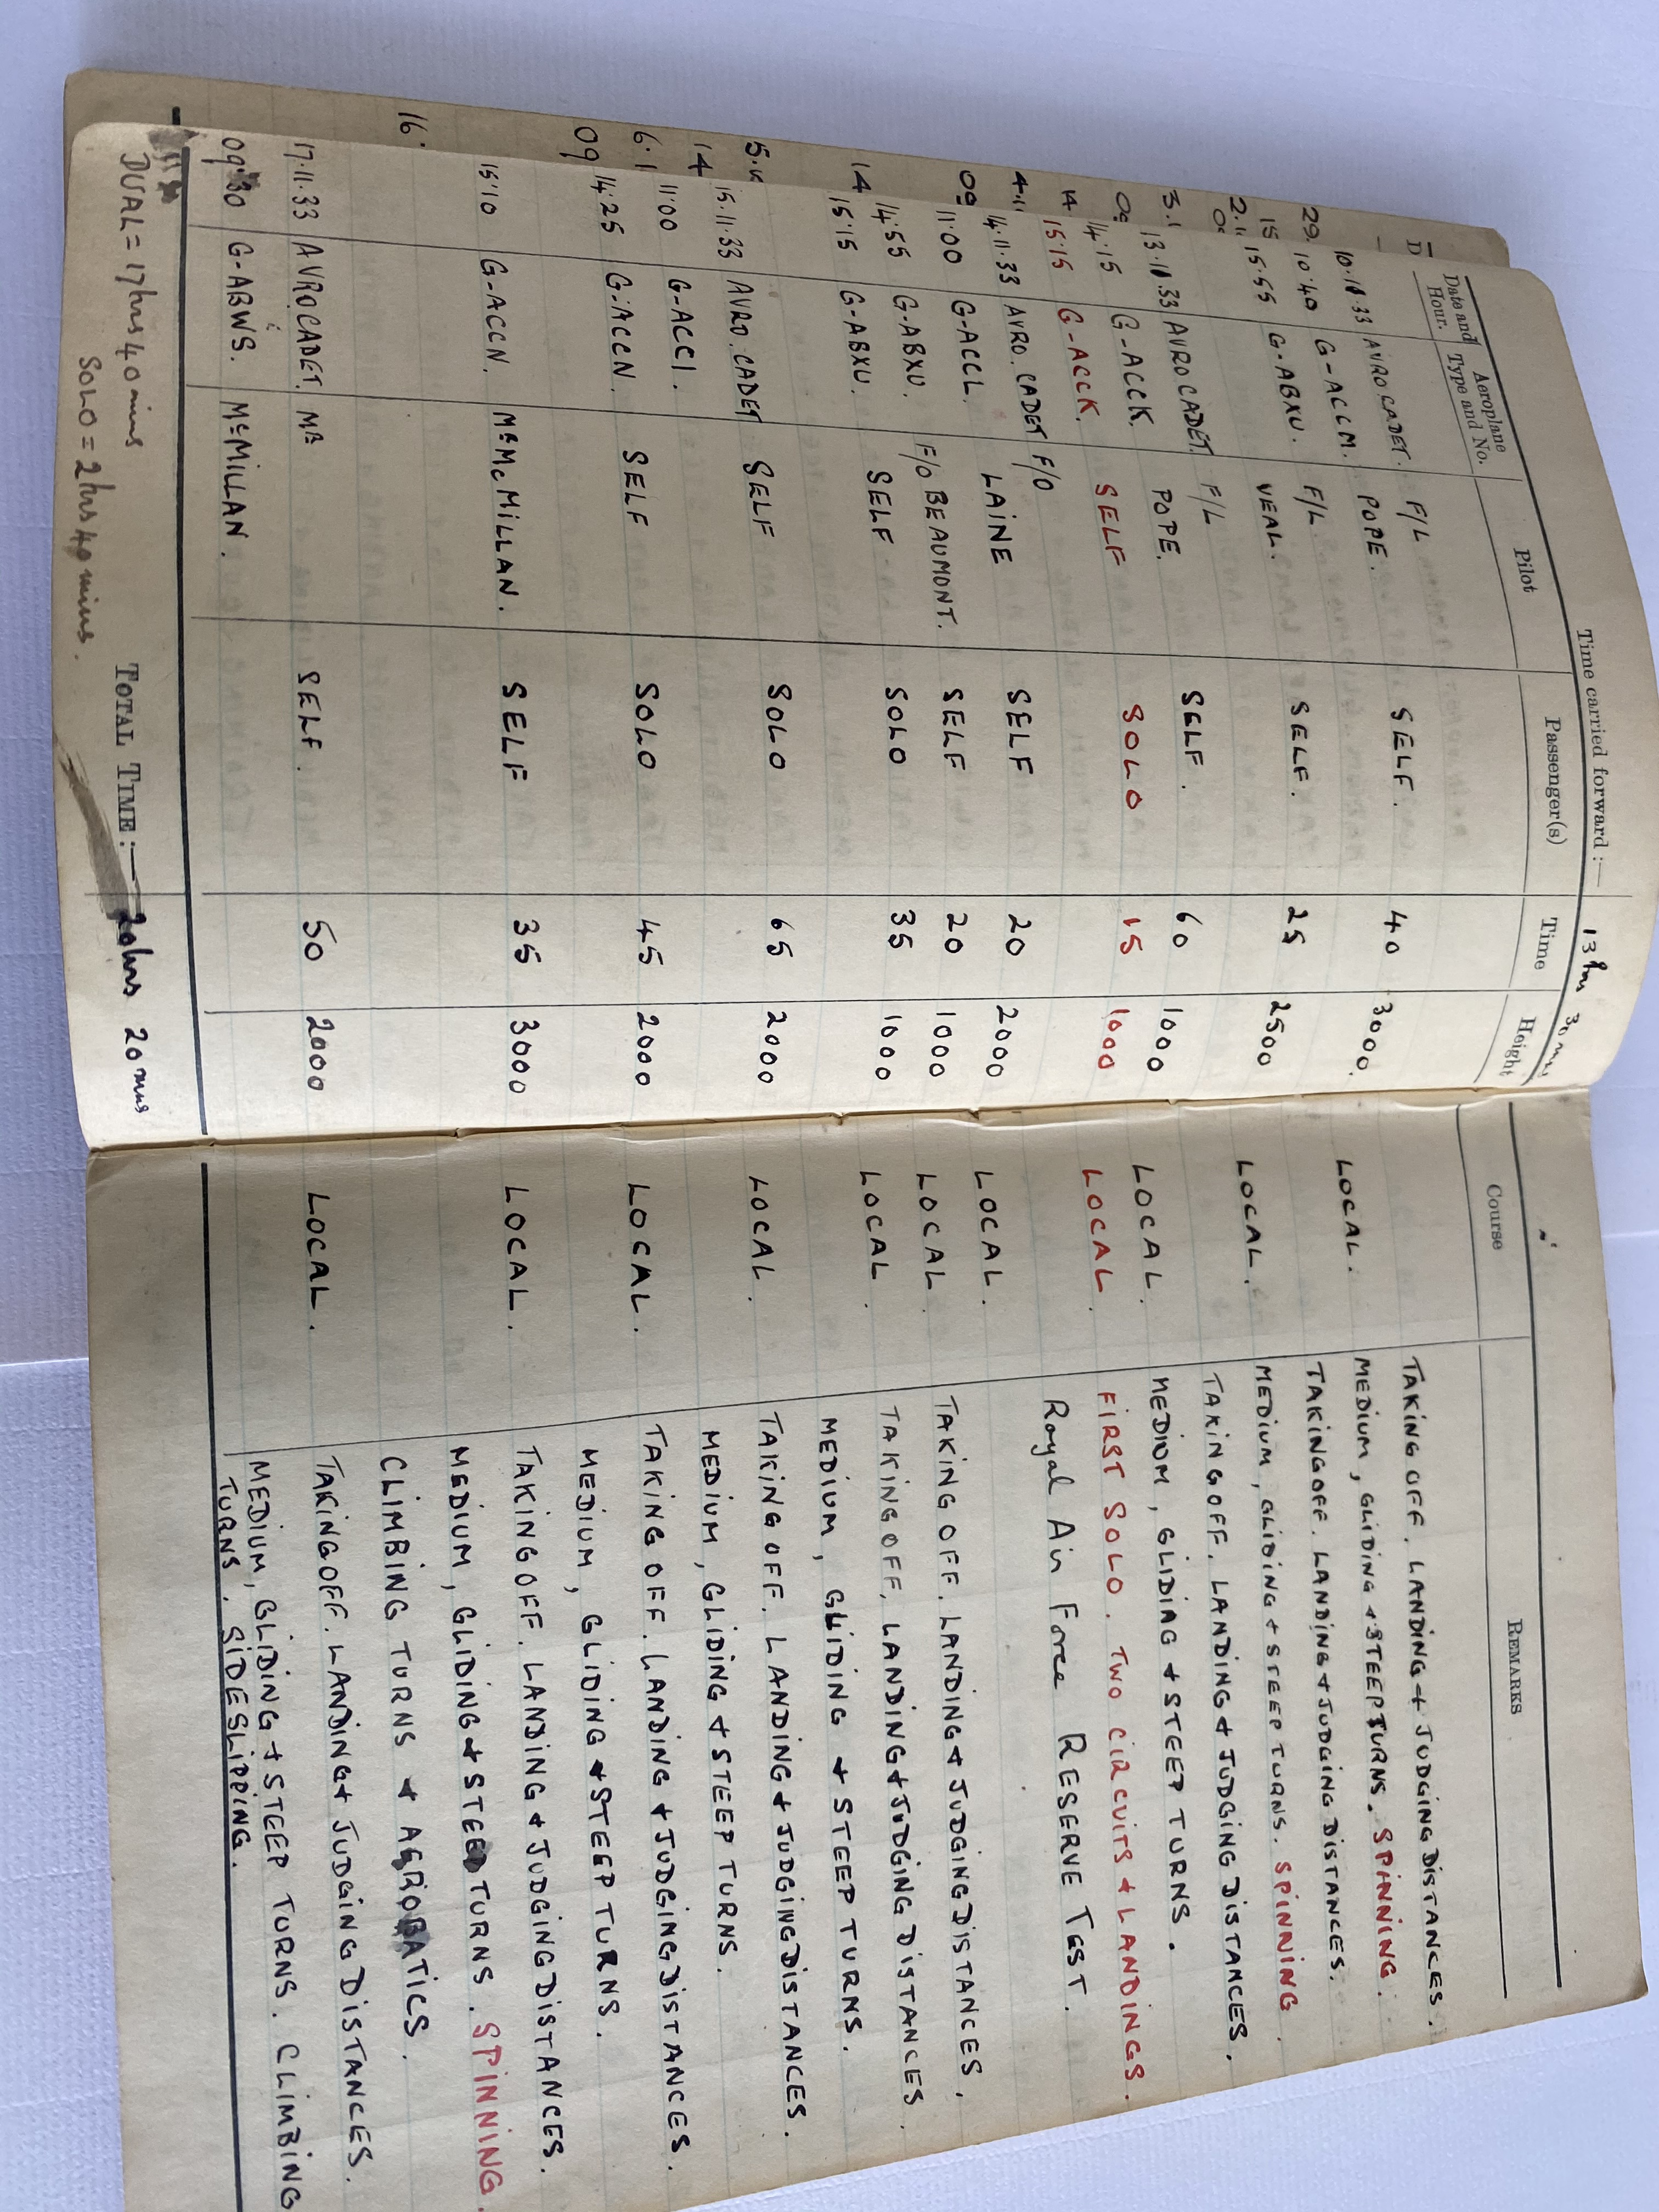 Time carried forward :— 13 hrs 30 mns
Date and Hour. Aeroplane Type and No. Pilot Passenger(s) Time Height Course REMARKS
10.11.33 AVRO CADET. F/L SELF. 40 3000. LOCAL. TAKING OFF. LANDING & JUDGING DISTANCES.
10.40 G-ACCM. POPE. MEDIUM, GLIDING & STEEP TURNS. SPINNING.
F/L SELF. 25 2500 LOCAL. TAKING OFF. LANDING & JUDGING DISTANCES.
15.55 G-ABXU. VEAL. MEDIUM, GLIDING & STEEP TURNS. SPINNING.
13.11.33 AVRO CADET. F/L SELF. 60 1000 LOCAL. TAKING OFF. LANDING & JUDGING DISTANCES.
14.15 G-ACCK. POPE. MEDIUM, GLIDING & STEEP TURNS.
15.15 G-ACCK. SELF SOLO 15 1000 LOCAL. FIRST SOLO. TWO CIRCUITS & LANDINGS.
14.11.33 AVRO. CADET F/O LAINE SELF 20 2000 LOCAL. Royal Air Force RESERVE TEST.
11.00 G-ACCL. F/O BEAUMONT. SELF 20 1000 LOCAL. TAKING OFF. LANDING & JUDGING DISTANCES.
14.55 G-ABXU. SELF SOLO 35 1000 LOCAL. TAKING OFF, LANDING & JUDGING DISTANCES.
15.15 G-ABXU. MEDIUM, GLIDING & STEEP TURNS.
15.11.33 AVRO. CADET SELF SOLO 65 2000 LOCAL. TAKING OFF. LANDING & JUDGING DISTANCES.
11.00 G-ACCI. MEDIUM, GLIDING & STEEP TURNS.
14.25 G-ACCN. SELF SOLO 45 2000 LOCAL. TAKING OFF. LANDING & JUDGING DISTANCES.
MEDIUM, GLIDING & STEEP TURNS.
15.10 G-ACCN. MR McMILLAN. SELF 35 3000 LOCAL. TAKING OFF. LANDING & JUDGING DISTANCES.
MEDIUM, GLIDING & STEEP TURNS. SPINNING.
CLIMBING TURNS & AEROBATICS.
17.11.33 AVRO CADET. MR SELF. 50 2000 LOCAL. TAKING OFF. LANDING & JUDGING DISTANCES.
09.30 G-ABWS. McMILLAN. MEDIUM, GLIDING & STEEP TURNS. CLIMBING
TURNS. SIDESLIPPING.
DUAL = 17hrs 40 mins TOTAL TIME :— 20hrs 20 mns
SOLO = 2hrs 40 mins.